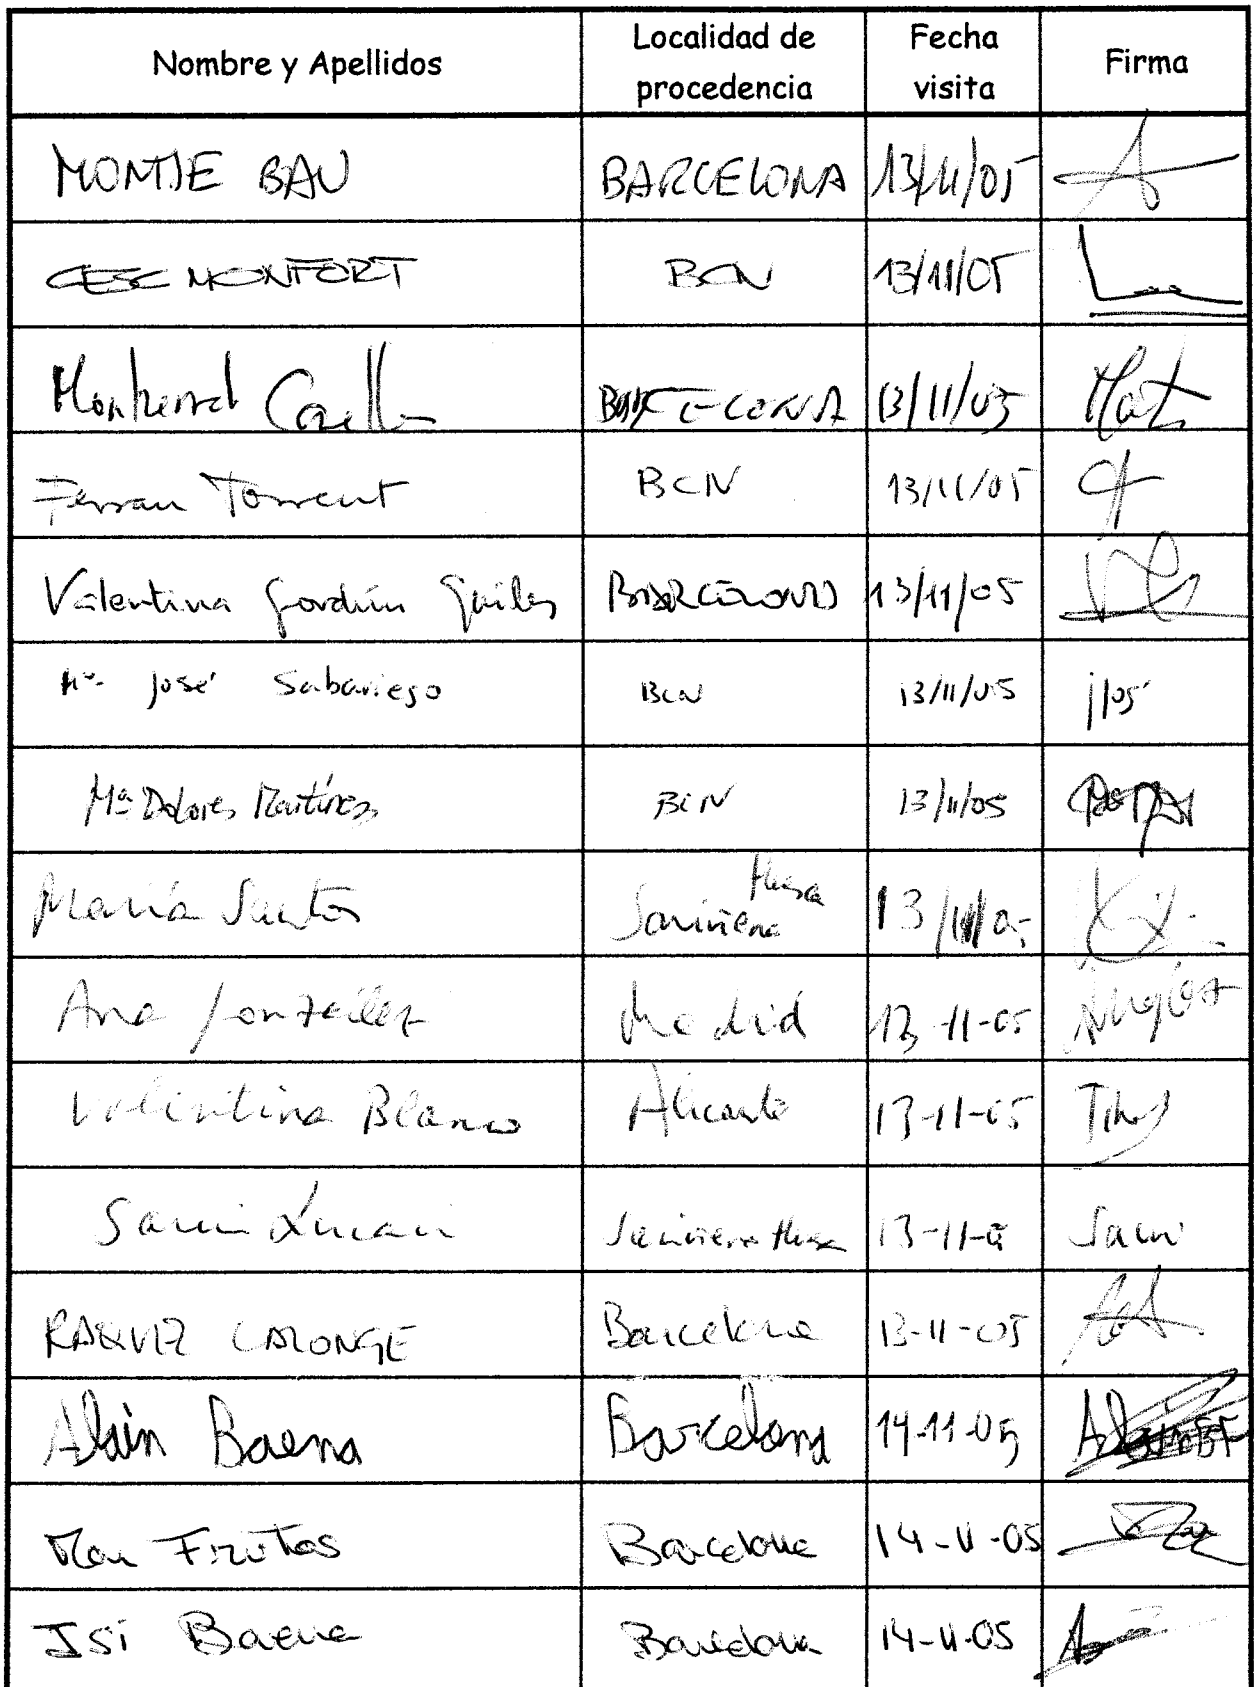 Nombre y Apellidos Localidad de procedencia Fecha visita Firma
MONTSE BAU BARCELONA 13/11/05
CESC MONFORT BCN 13/11/05
Montserrat BARCELONA 13/11/05
Ferran Torrent BCN 13/11/05
Valentina Gordún Guiles BARCELONA 13/11/05
Mª José Sabariego BCN 13/11/05
Mª Dolores Martínez BCN 13/11/05
María Santos Sariñena Huesca 13/11/05
Ana González Madrid 13-11-05
Valentina Blanco Alicante 13-11-05
Sariñena Huesca 13-11-05
RAQUEL CALONGE Barcelona 13-11-05
Alain Baena Barcelona 14-11-05
Frutos Barcelona 14-11-05
Isi Baena Barcelona 14-11-05